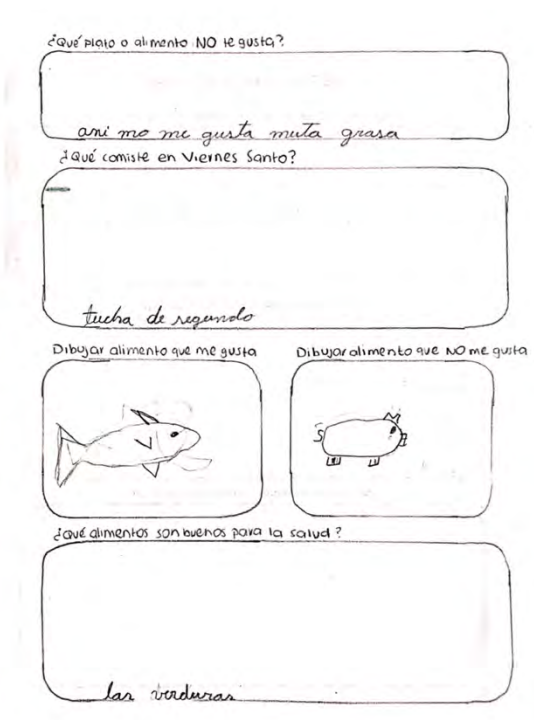 ¿Qué plato o alimento NO te gusta?
ani mo me gusta muta grasa
¿Qué comiste en Viernes Santo?
tucha de segundo
Dibujar alimento que me gusta
Dibujar alimento que NO me gusta
¿Qué alimentos son buenos para la salud?
las verduras